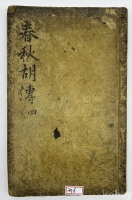 春秋胡傳 四